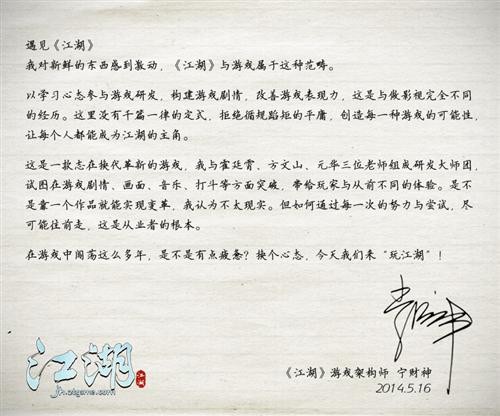 遇见《江湖》
我对新鲜的东西感到激动，《江湖》与游戏属于这种范畴。
以学习心态参与游戏研发，构建游戏剧情，改善游戏表现力，这是与做影视完全不同
的经历。这里没有千篇一律的定式，拒绝循规蹈矩的平庸，创造每一种游戏的可能性，
让每个人都能成为江湖的主角。
这是一款志在换代革新的游戏，我与霍廷霄、方文山、元华三位老师组成研发大师团，
试图在游戏剧情、画面、音乐、打斗等方面突破，带给玩家与从前不同的体验。是不
是靠一个作品就能实现变革，我认为不太现实。但如何通过每一次的努力与尝试，尽
可能往前走，这是从业者的根本。
在游戏中闯荡这么多年，是不是有点疲惫？换个心态，今天我们来“玩江湖”！
江湖
江湖
jh.ztgame.com
《江湖》游戏架构师 宁财神
2014.5.16